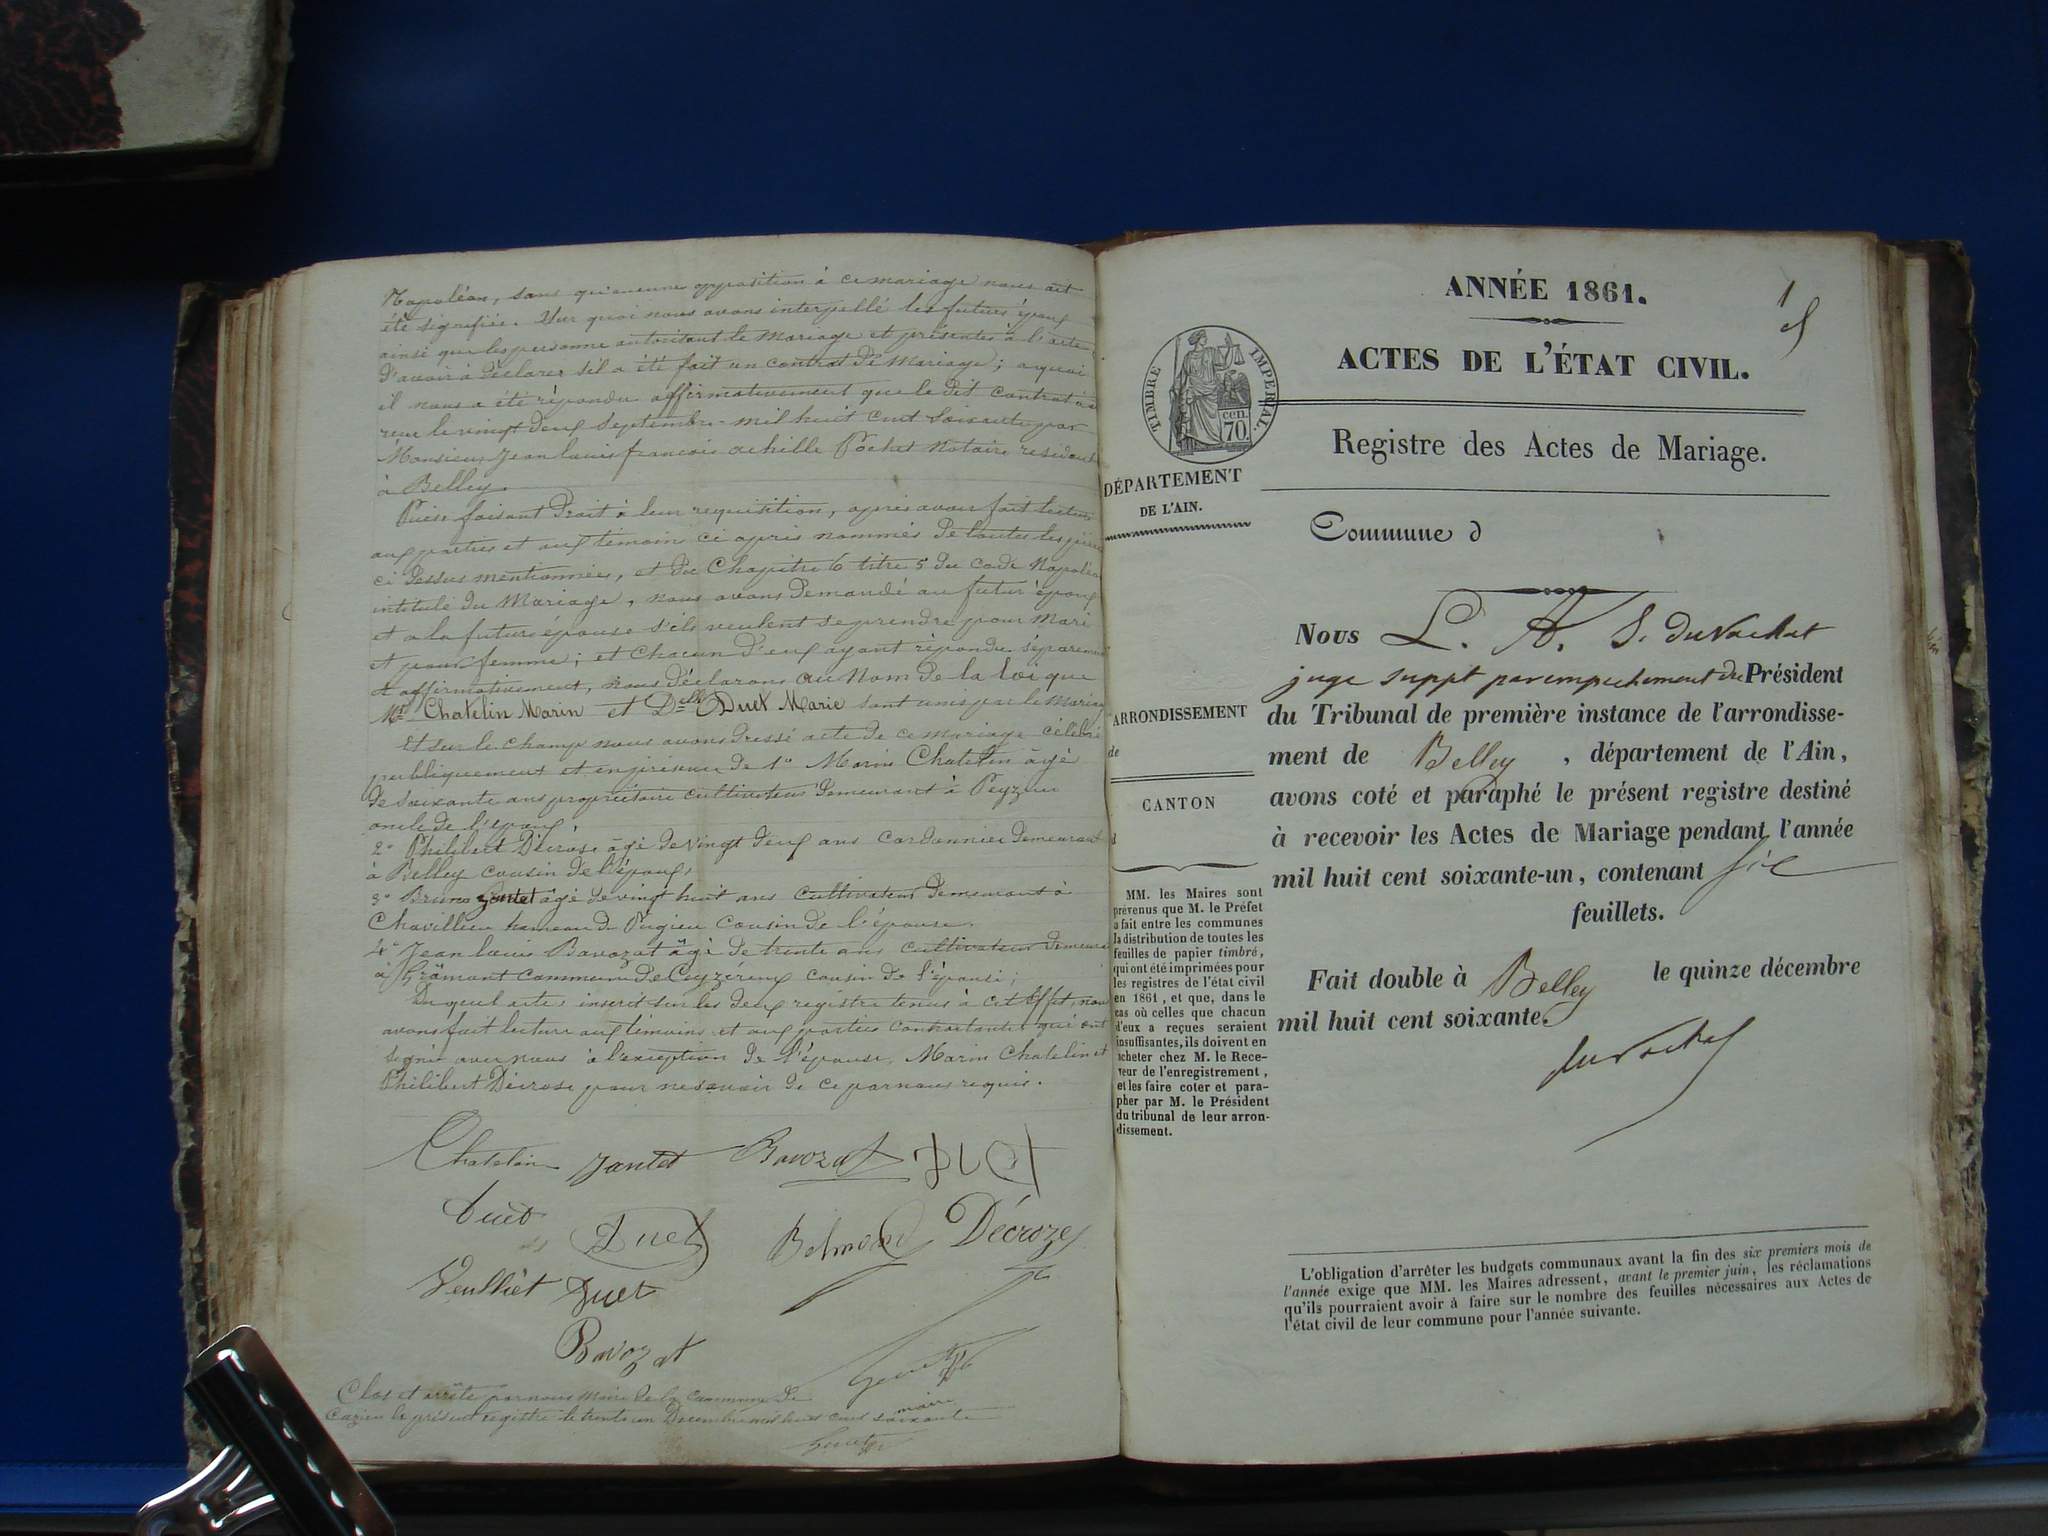 Napoléon, sans qu'aucune opposition à ce mariage nous ait
été signifiée. Sur quoi nous avons interpellé les futurs époux
ainsi que les personne autorisant le mariage et présentes à l'acte
d'avoir à déclarer s'il a été fait un contrat de mariage; a quoi
il nous a été répondu affirmativement que le dit contrat a été
reçu le vingt deux septembre mil huit cent soixante par
Monsieur Jean louis françois achille Pochet Notaire résidant
à Belley.
Puis faisant droit à leur requisition, après avoir fait lecture
aux parties et aux témoins ci après nommés de toutes les pièces
ci dessus mentionnées, et du Chapitre 6 titre 5 du code Napoléon
intitulé du Mariage, nous avons demandé au futur époux
et a la future épouse s'ils veulent se prendre pour mari
et pour femme; et chacun d'eux ayant répondu séparement
et affirmativement, nous déclarons au Nom de la loi que
Mr Chatelin Marin et Delle Duet Marie sont unis par le Mariage
Et sur le champ nous avons dressé acte de ce mariage célébré
publiquement et en présence de 1° Marin Chatelin âgé
de soixante ans propriétaire cultivateur demeurant à Peyzieu
oncle de l'époux,
2° Philibert Décrose âgé de vingt deux ans Cordonnier demeurant
à Belley cousin de l'époux,
3° Bruno Jantet âgé de vingt huit ans cultivateur demeurant à
Chavillieu hameau de Pugieu Cousin de l'épouse,
4° Jean louis Bavozat âgé de trente ans cultivateur demeurant
à Grâmont Commune de Ceyzérieux cousin de l'épouse;
Du quel acte, inscrit sur les deux registre tenus à cet effet, nous
avons fait lecture aux témoins et aux parties contractantes qui ont
signé avec nous à l'exception de l'épouse, Marin Chatelin et
Philibert Décrose pour ne savoir de ce par nous requis.
Chatelin Jantet Bavozat DUET
Duet Duet Belmond Décroze
Veulliet Duet
Bavozat
Clos et arrêté par nous Maire de la Commune de
Cuzieu le présent registre le trente un Decembre mil huit cent soixante
maire
ANNÉE 1861.
1
ACTES DE L'ÉTAT CIVIL.
TIMBRE IMPERIAL.
cen.
70
Registre des Actes de Mariage.
DÉPARTEMENT
DE L'AIN.
Commune d
Nous L. A. S. duvachat
juge suppt par empechement du Président
du Tribunal de première instance de l'arrondisse-
ment de Belley, département de l'Ain,
avons coté et paraphé le présent registre destiné
à recevoir les Actes de Mariage pendant l'année
mil huit cent soixante-un, contenant six
feuillets.
Fait double à Belley le quinze décembre
mil huit cent soixante.
duvachat
ARRONDISSEMENT
de
CANTON
d
MM. les Maires sont
prévenus que M. le Préfet
a fait entre les communes
la distribution de toutes les
feuilles de papier timbré,
qui ont été imprimées pour
les registres de l'état civil
en 1861, et que, dans le
cas où celles que chacun
d'eux a reçues seraient
insuffisantes, ils doivent en
acheter chez M. le Rece-
veur de l'enregistrement,
et les faire coter et para-
pher par M. le Président
du tribunal de leur arron-
dissement.
L'obligation d'arrêter les budgets communaux avant la fin des six premiers mois de
l'année exige que MM. les Maires adressent, avant le premier juin, les réclamations
qu'ils pourraient avoir à faire sur le nombre des feuilles nécessaires aux Actes de
l'état civil de leur commune pour l'année suivante.